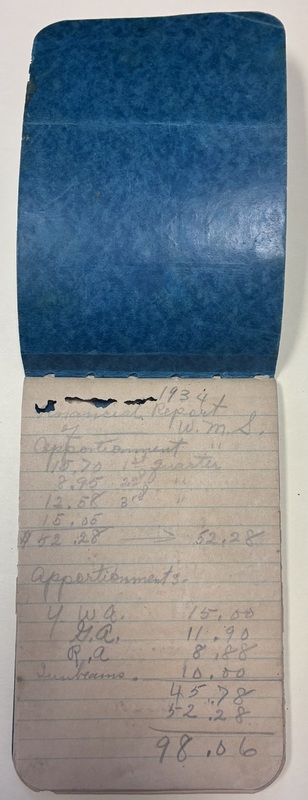 1934
Financial Report
of W.M.S.
Apportionment "
15.70 1st quarter
8.95 2nd "
12.58 3rd "
15.05
$52.28 → 52.28
Apportionments.
Y W A. 15.00
G.A. 11.90
R.A 8.88
Sunbeams. 10.00
45.78
52.28
98.06